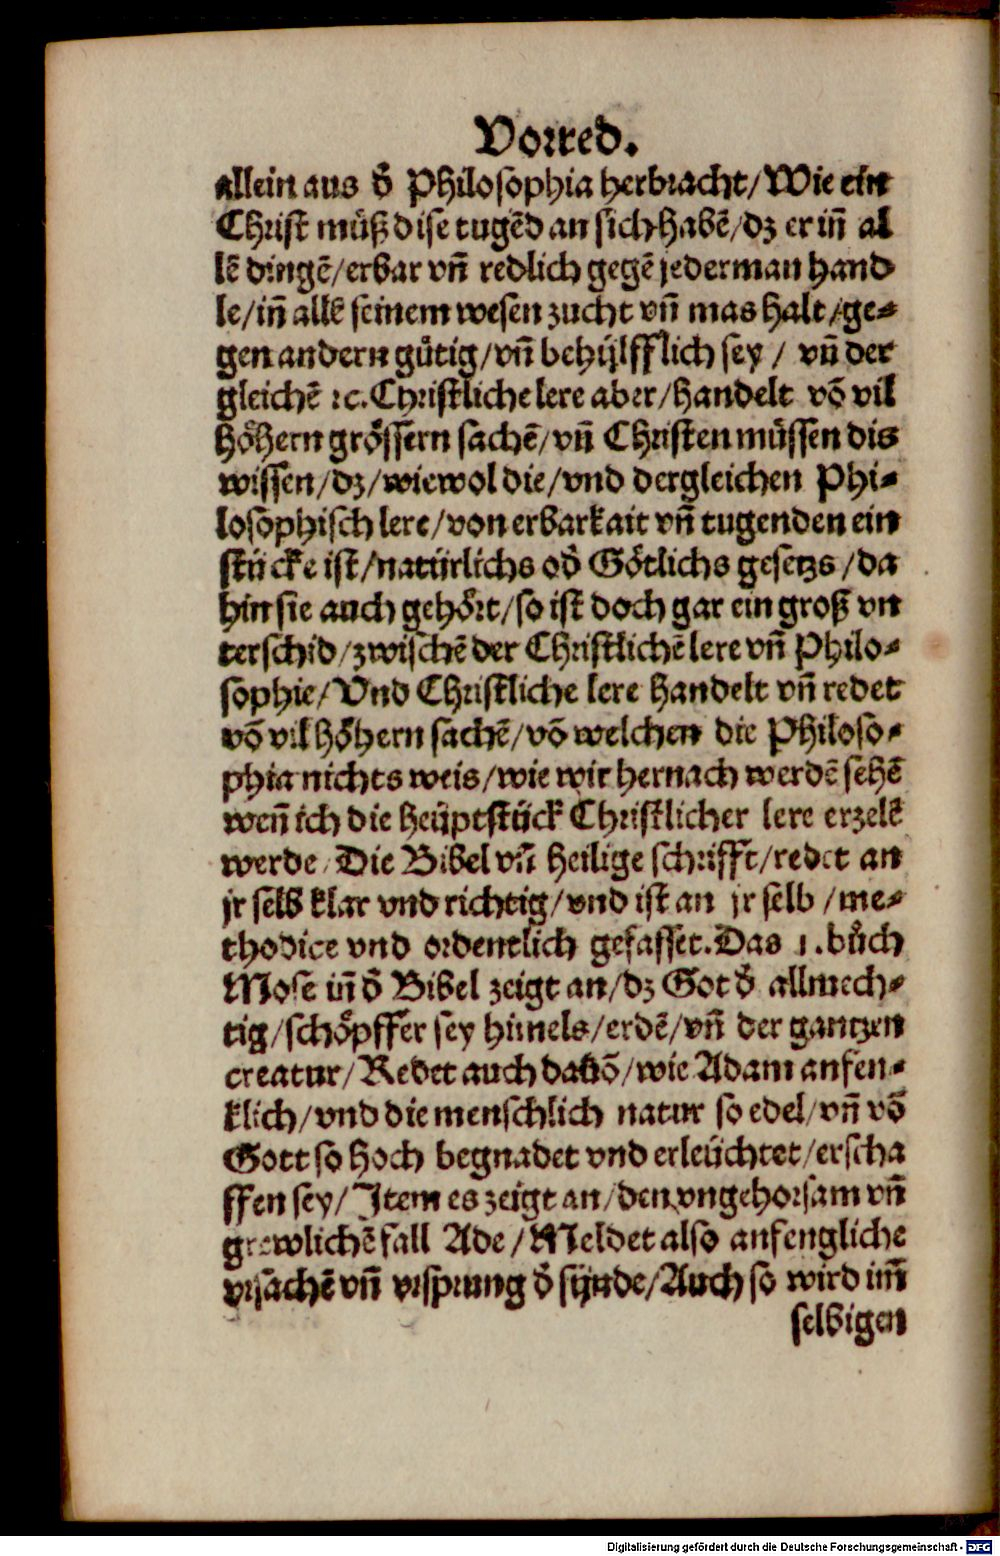 Vorred.
allein aus d̄ Philosophia herbracht/Wie ein
Christ müß dise tugēd an sich habē/dz er iñ al
lē dingē/erbar vñ redlich gegē jederman hand
le/iñ allē seinem wesen zucht vñ mas halt/ge-
gen andern gütig/vñ behülfflich sey/ vñ der
gleichē ꝛc. Christliche lere aber/handelt vō vil
höhern grössern sachē/vñ Christen müssen dis
wissen/dz/wiewol die/vnd dergleichen Phi-
losophisch lere/von erbarkait vñ tugenden ein
stücke ist/natürlichs od̄ Götlichs gesetzs/da
hin sie auch gehört/so ist doch gar ein groß vn
terschid/zwischē der Christlichē lere vñ Philo-
sophie/Vnd Christliche lere handelt vñ redet
vō vil höhern sachē/vō welchen die Philoso-
phia nichts weis/wie wir hernach werdē sehē
weñ ich die heüptstück Christlicher lere erzelē
werde/Die Bibel vñ heilige schrifft/redet an
jr selb klar vnd richtig/vnd ist an jr selb/me-
thodice vnd ordentlich gefasset. Das 1. bůch
Mose iñ d̄ Bibel zeigt an/dz Got d̄ allmech-
tig/schöpffer sey himels/erdē/vñ der gantzen
creatur/Redet auch dauō/wie Adam anfen-
klich/vnd die menschlich natur so edel/vñ vō
Gott so hoch begnadet vnd erleüchtet/erscha
ffen sey/Item es zeigt an/den vngehorsam vñ
grewlichē fall Ade/Meldet also anfengliche
vrsachē vñ vrsprung d̄ sünde/Auch so wird im̄
selbigen
Digitalisierung gefördert durch die Deutsche Forschungsgemeinschaft - DFG